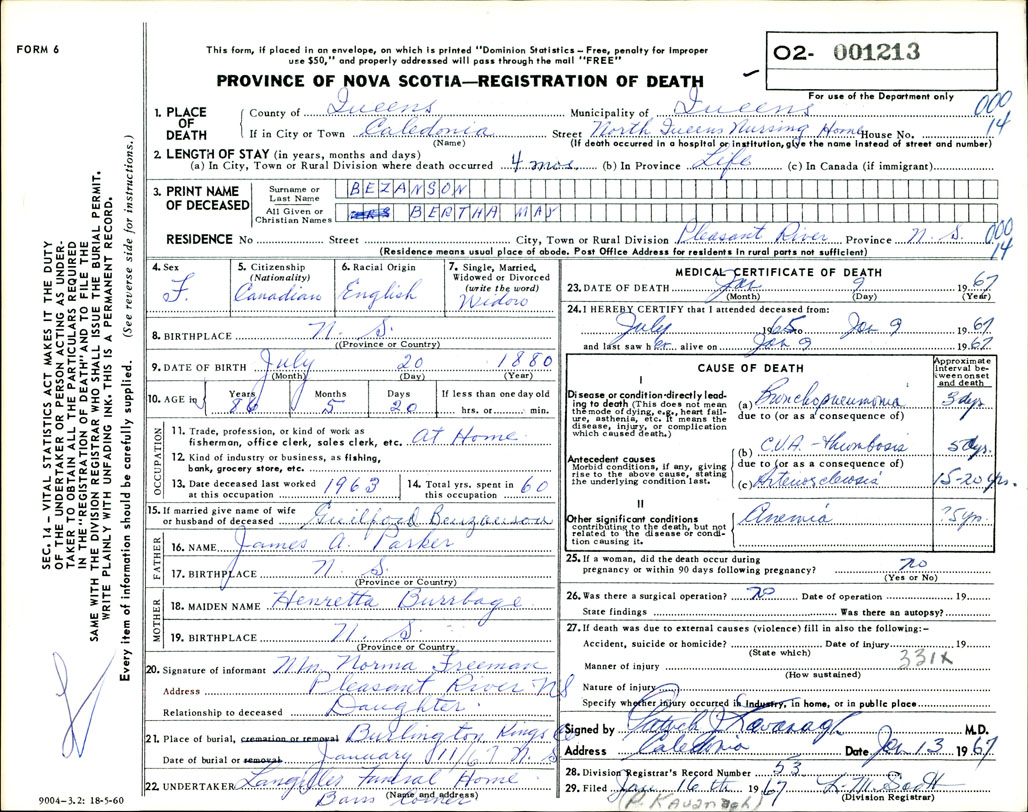 FORM 6
This form, if placed in an envelope, on which is printed "Dominion Statistics – Free, penalty for improper
use $50," and properly addressed will pass through the mail "FREE"
PROVINCE OF NOVA SCOTIA—REGISTRATION OF DEATH
O2- 001213
For use of the Department only
000
14
1. PLACE OF DEATH
County of Queens Municipality of Queens
If in City or Town Caledonia Street North Queens Nursing Home House No.
(Name) (If death occurred in a hospital or institution, give the name instead of street and number)
2. LENGTH OF STAY (in years, months and days)
(a) In City, Town or Rural Division where death occurred 4 mos. (b) In Province Life (c) In Canada (if immigrant)
3. PRINT NAME OF DECEASED
Surname or Last Name BEZANSON
All Given or Christian Names BERTHA MAY
RESIDENCE No Street City, Town or Rural Division Pleasant River Province N. S.
000
14
(Residence means usual place of abode. Post Office Address for residents in rural parts not sufficient)
4. Sex F.
5. Citizenship (Nationality) Canadian
6. Racial Origin English
7. Single, Married, Widowed or Divorced (write the word) Widow
8. BIRTHPLACE N. S.
(Province or Country)
9. DATE OF BIRTH July 20 1880
(Month) (Day) (Year)
10. AGE in Years 86 Months 5 Days 20 If less than one day old hrs. or min.
OCCUPATION
11. Trade, profession, or kind of work as fisherman, office clerk, sales clerk, etc. At Home
12. Kind of industry or business, as fishing, bank, grocery store, etc.
13. Date deceased last worked at this occupation 1963
14. Total yrs. spent in this occupation 60
15. If married give name of wife or husband of deceased Guilford Benzanson
FATHER
16. NAME James A. Parker
17. BIRTHPLACE N. S.
(Province or Country)
MOTHER
18. MAIDEN NAME Henretta Burrbage
19. BIRTHPLACE N. S.
(Province or Country)
20. Signature of informant Mrs Norma Freeman
Address Pleasant River NS
Relationship to deceased Daughter
21. Place of burial, cremation or removal Burlington Kings Co
Date of burial or removal January 11/67 N. S
22. UNDERTAKER Langilles Funeral Home
(Name and address)
Barss Corner
9004–3.2: 18-5-60
MEDICAL CERTIFICATE OF DEATH
23. DATE OF DEATH Jan 9 1967
(Month) (Day) (Year)
24. I HEREBY CERTIFY that I attended deceased from:
July 1965 to Jan 9 1967
and last saw her alive on Jan 9 1967
CAUSE OF DEATH
Approximate interval between onset and death
I
Disease or condition directly leading to death (This does not mean the mode of dying, e.g., heart failure, asthenia, etc. It means the disease, injury, or complication which caused death.)
(a) Bronchopneumonia 3 days
due to (or as a consequence of)
Antecedent causes
Morbid conditions, if any, giving rise to the above cause, stating the underlying condition last.
(b) C.V.A. - thrombosis 5 dys.
due to (or as a consequence of)
(c) Arteriosclerosis 15-20 yrs.
II
Other significant conditions contributing to the death, but not related to the disease or condition causing it.
Anemia ? 5 yrs.
25. If a woman, did the death occur during pregnancy or within 90 days following pregnancy? no
(Yes or No)
26. Was there a surgical operation? no Date of operation 19
State findings Was there an autopsy?
27. If death was due to external causes (violence) fill in also the following:–
Accident, suicide or homicide? Date of injury 19
(State which)
331X
Manner of injury
(How sustained)
Nature of injury
Specify whether injury occurred in industry, in home, or in public place
Signed by Patrick J Kavanagh M.D.
Address Caledonia Date Jan 13 1967
28. Division Registrar's Record Number 53
29. Filed Jan 16th 1967 L. M. Scott
(Division Registrar)
(P. Kavanagh)
SEC. 14 – VITAL STATISTICS ACT MAKES IT THE DUTY
OF THE UNDERTAKER OR PERSON ACTING AS UNDER-
TAKER TO OBTAIN ALL THE PARTICULARS REQUIRED
IN THE "REGISTRATION OF DEATH" AND TO FILE THE
SAME WITH THE DIVISION REGISTRAR WHO SHALL ISSUE THE BURIAL PERMIT.
WRITE PLAINLY WITH UNFADING INK. THIS IS A PERMANENT RECORD.
Every item of information should be carefully supplied. (See reverse side for instructions.)